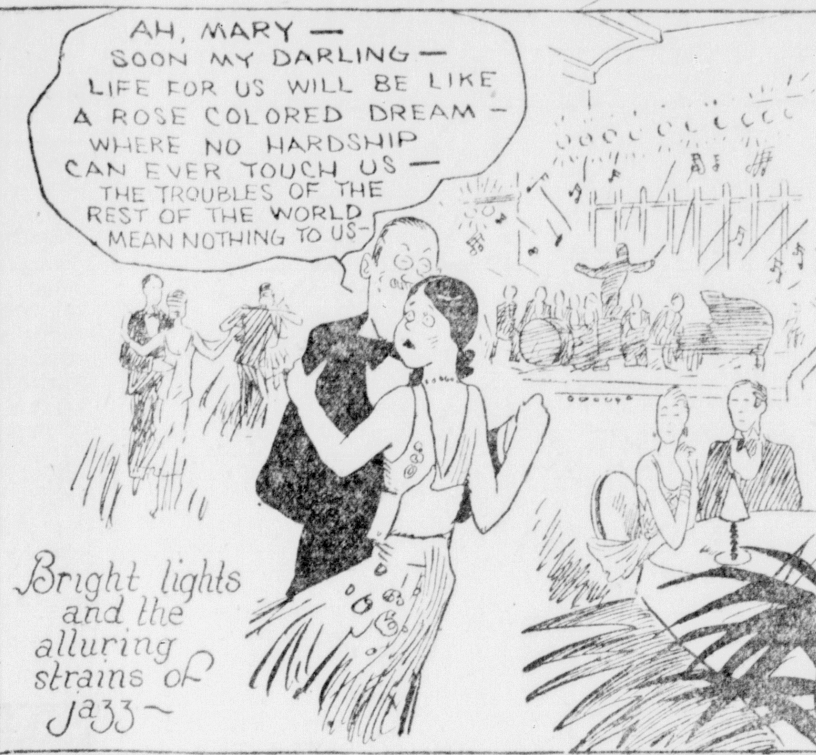 AH, MARY —
SOON MY DARLING —
LIFE FOR US WILL BE LIKE
A ROSE COLORED DREAM —
WHERE NO HARDSHIP
CAN EVER TOUCH US —
THE TROUBLES OF THE
REST OF THE WORLD
MEAN NOTHING TO US —
Bright lights
and the
alluring
strains of
jazz ~